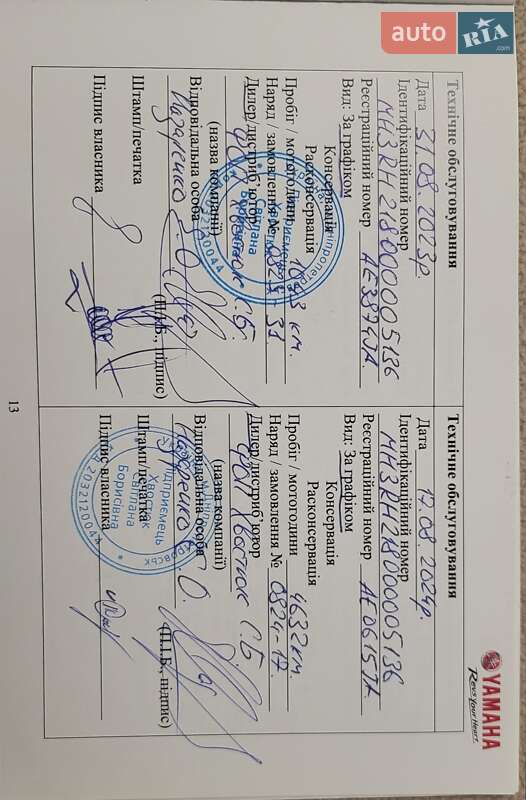 auto RIA.com
YAMAHA
Revs Your Heart.
Технічне обслуговування
Дата 31.08.2023р.
Ідентифікаційний номер
MH3RH218000005136
Реєстраційний номер
Вид: За графіком
Консервація
Расконсервація
Пробіг / мотогодини км.
Наряд / замовлення № 0823-31
Дилер/дистриб'ютор
ФОП Хвостюк С.Б.
(назва компанії)
Відповідальна особа
(П.І.Б., підпис)
Штамп/печатка
Підпис власника
Технічне обслуговування
Дата 17.08.2024р.
Ідентифікаційний номер
MH3RH218000005136
Реєстраційний номер AE0615TA
Вид: За графіком
Консервація
Расконсервація
Пробіг / мотогодини 4632км.
Наряд / замовлення № 0824-17
Дилер/дистриб'ютор
ФОП Хвостюк С.Б
(назва компанії)
Відповідальна особа
(П.І.Б., підпис)
Штамп/печатка
Підпис власника
Хвостюк
Світлана
Борисівна
2032120044
13